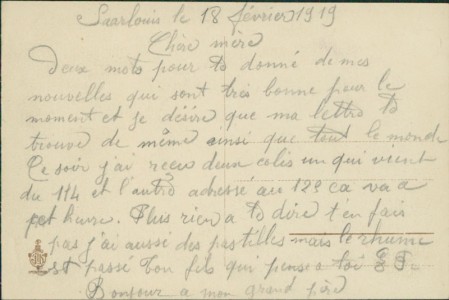 Saarlouis le 18 février 1919
Chère mère
Deux mots pour to donné de mes
nouvelles qui sont très bonne pour le
moment et je désire que ma lettre to
trouve de même ainsi que tout le monde
Ce soir j'ai recu deux colis un qui vient
du 114 et l'autre adressé au 12e ca va a
heure. Plus rien a to dire t'en fais
pas j'ai aussi des pastilles mais le rhume
est passé ton fils qui pense a toi
Bonjour a mon grand père